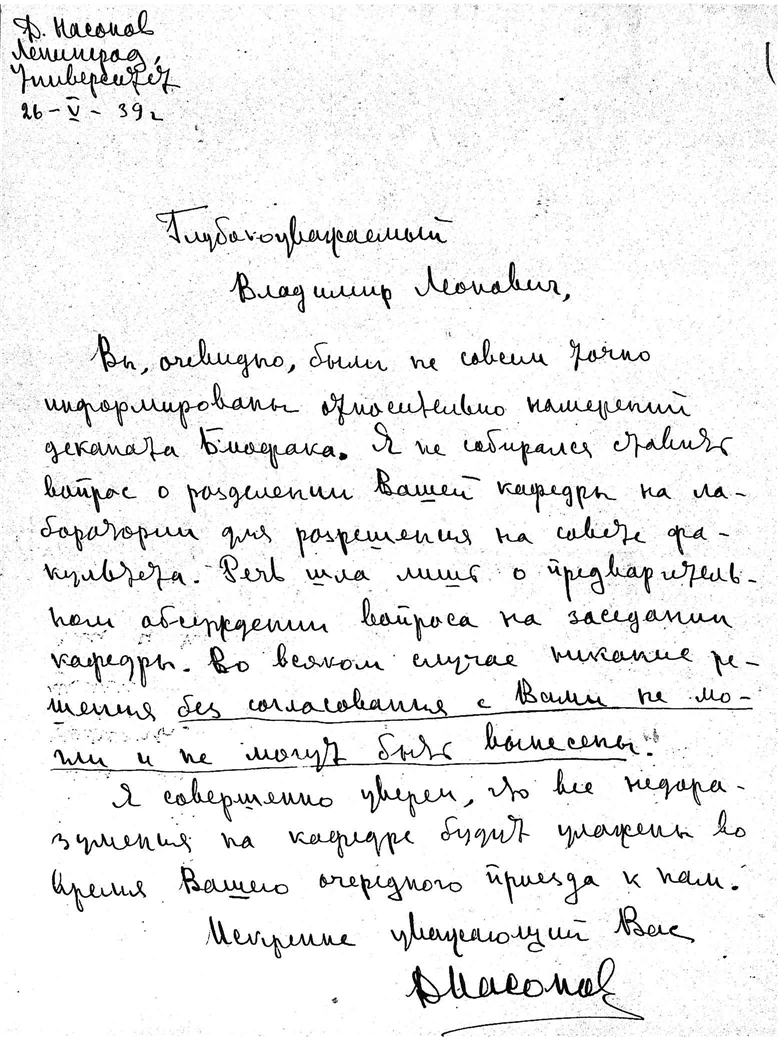 Д. Насонов
Ленинград,
Университет
26 – V – 39 г
Глубокоуважаемый
Владимир Леонович,
Вы, очевидно, были не совсем точно
информированы относительно намерений
деканата Биофака. Я не собирался ставить
вопрос о разделении Вашей кафедры на ла-
боратории для разрешения на совете фа-
культета. Речь шла лишь о предваритель-
ном обсуждении вопроса на заседании
кафедры. Во всяком случае никакие ре-
шения без согласования с Вами не мо-
гли и не могут быть вынесены.
Я совершенно уверен, что все недора-
зумения на кафедре будут улажены во
время Вашего очередного приезда к нам.
Искренне уважающий Вас
Д Насонов